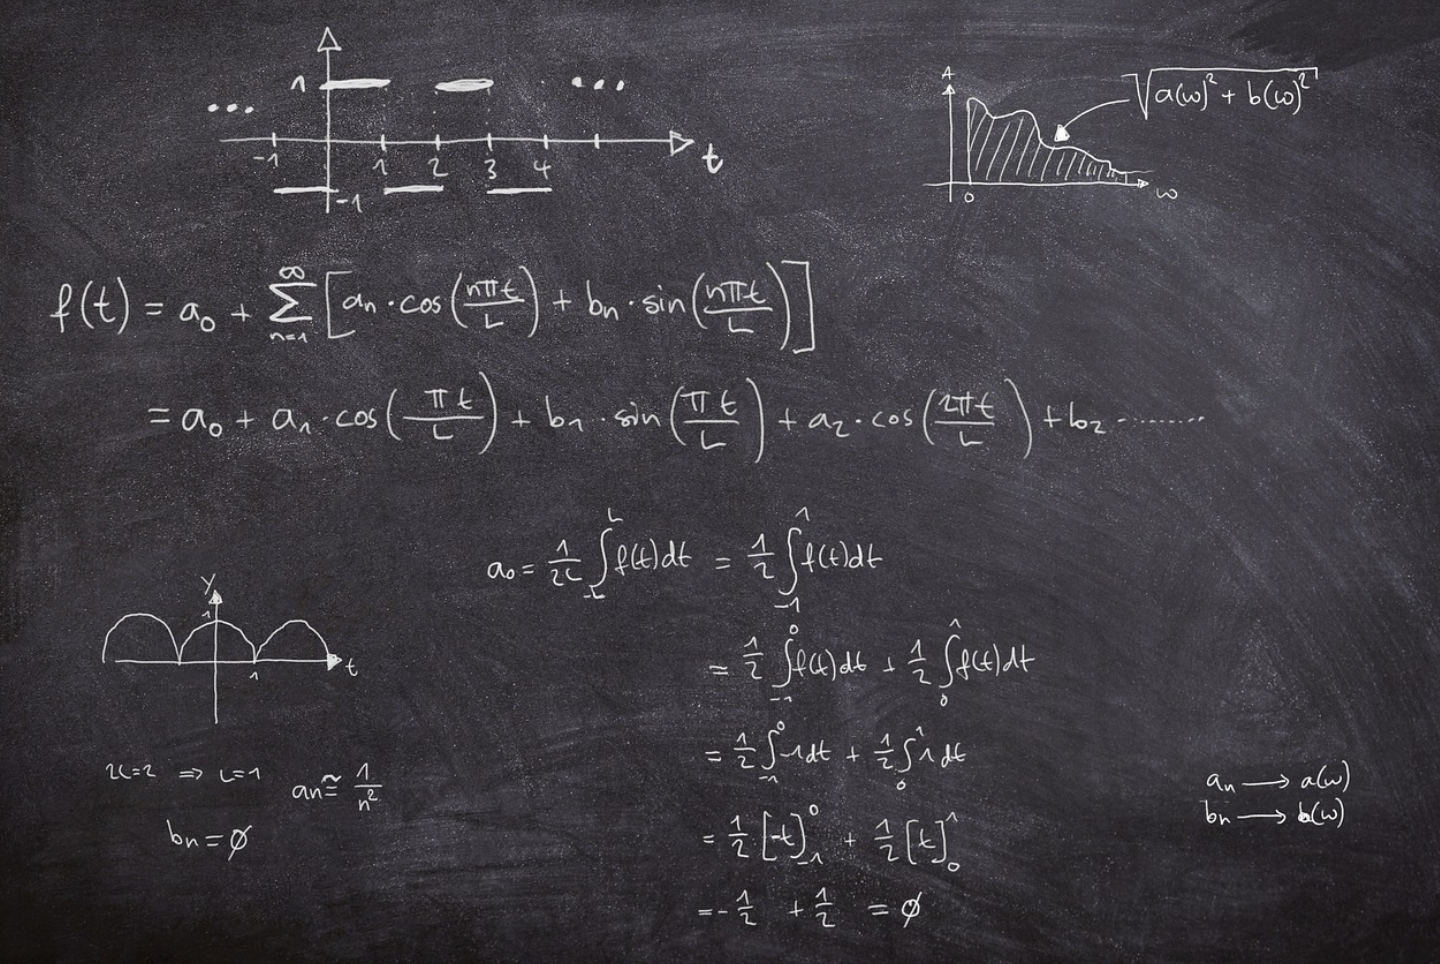 1
...
...
-1 1 2 3 4 t
-1
A
√a(ω)² + b(ω)²
0 ω
f(t) = a₀ + ∑ₙ₌₁^∞ [aₙ · cos(nπt/L) + bₙ · sin(nπt/L)]
= a₀ + a₁ · cos(πt/L) + b₁ · sin(πt/L) + a₂ · cos(2πt/L) + b₂ ........
a₀ = 1/2L ∫₋L^L f(t)dt = 1/2 ∫₋₁^1 f(t)dt
= 1/2 ∫₋₁^0 f(t)dt + 1/2 ∫₀^1 f(t)dt
= 1/2 ∫₋₁^0 -1dt + 1/2 ∫₀^1 1dt
= 1/2 [-t]₋₁^0 + 1/2 [t]₀^1
= -1/2 + 1/2 = ∅
y
1
t
1
2L=2 ⇒ L=1 aₙ ≅ 1/n²
bₙ = ∅
aₙ → a(ω)
bₙ → b(ω)